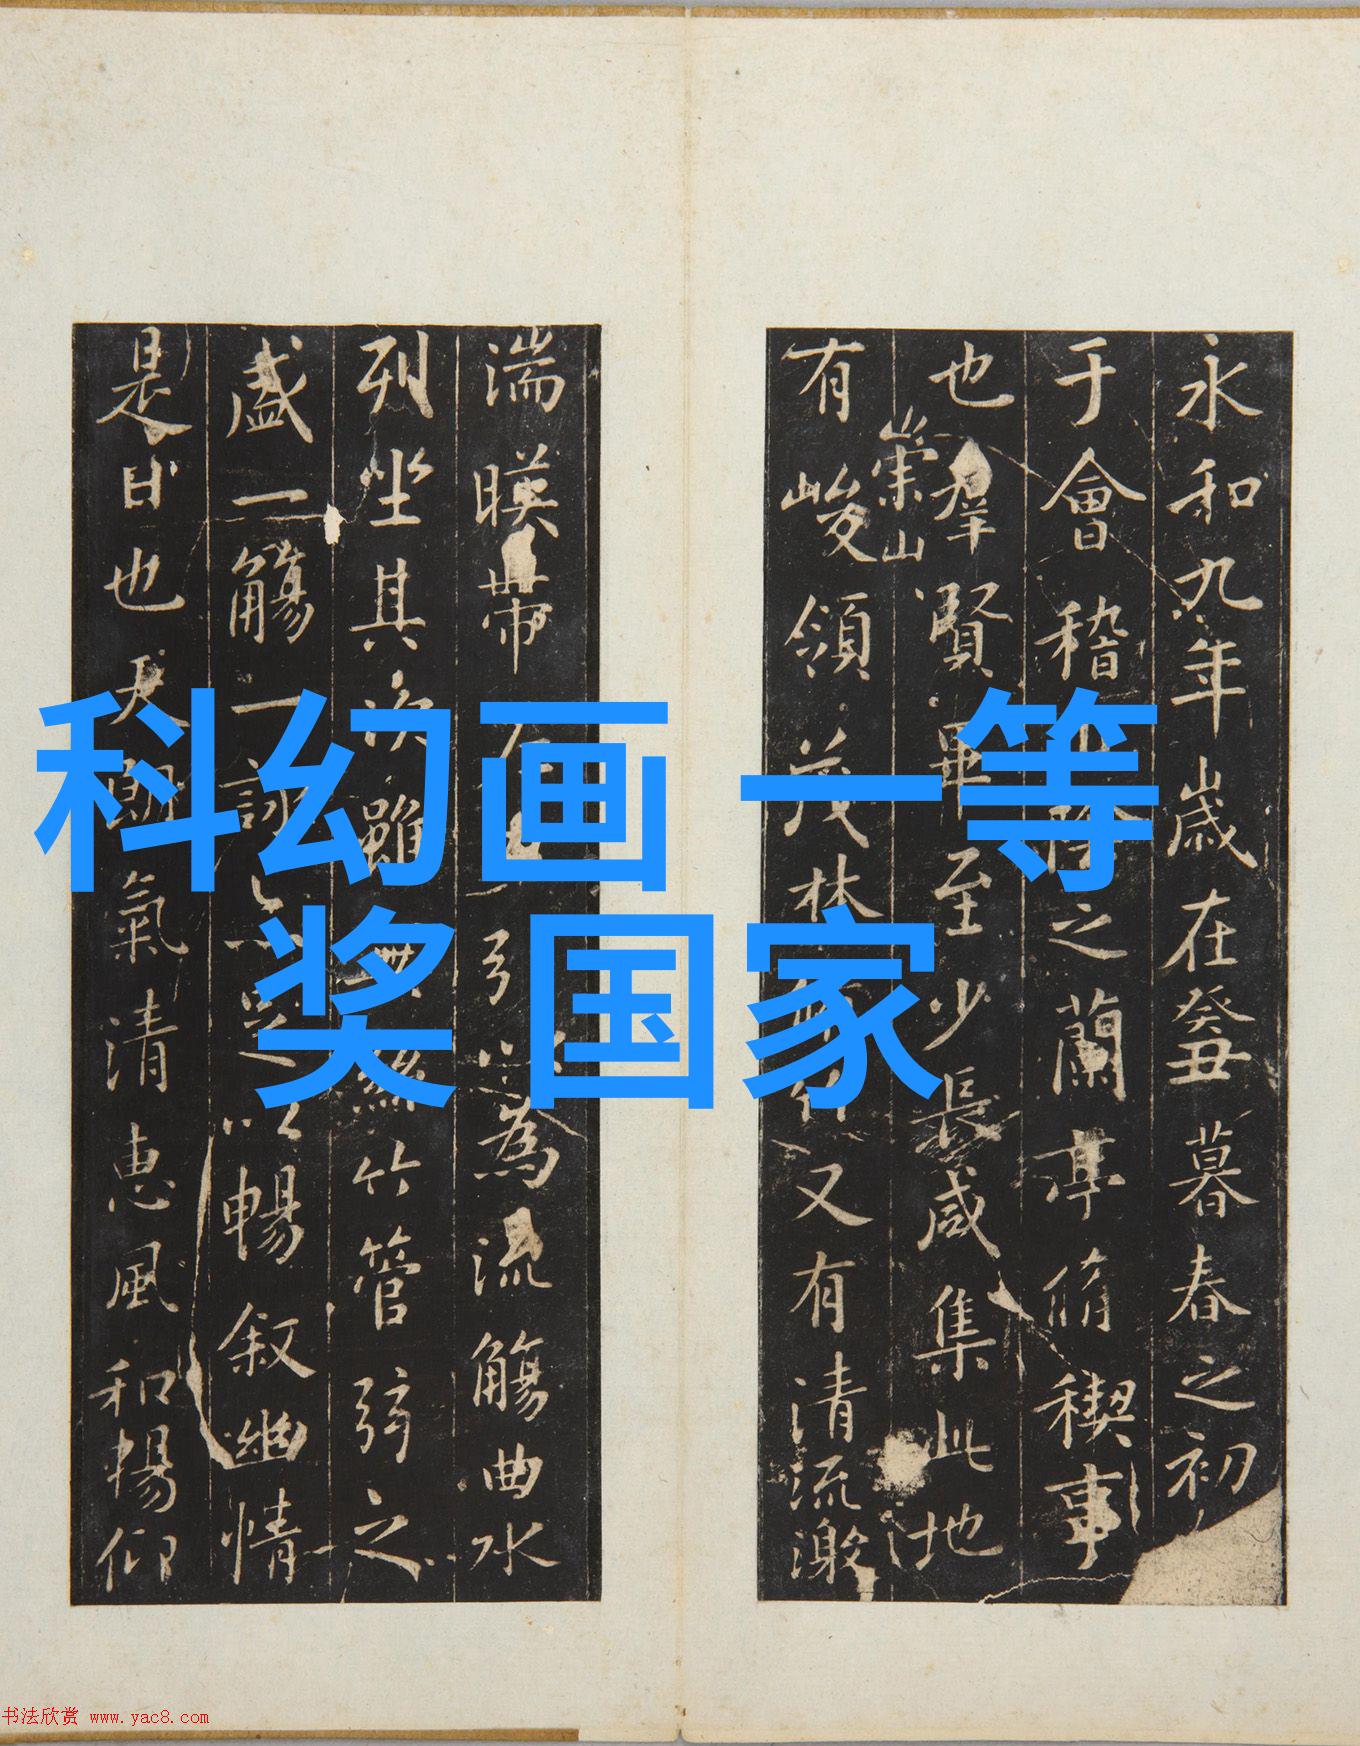 科幻画 一等
奖 国家
永和九年歲在癸丑暮春之初
于會稽之蘭亭脩稧事
也羣賢畢至少長咸集此地
崇山
有峻領茂林又有清流激
湍暎帶引以為流觴曲水
列坐其次雖絲竹管弦之
盛一觴一詠足以暢敘幽情
是日也天朗氣清惠風和暢仰
书法欣赏 www.yac8.com